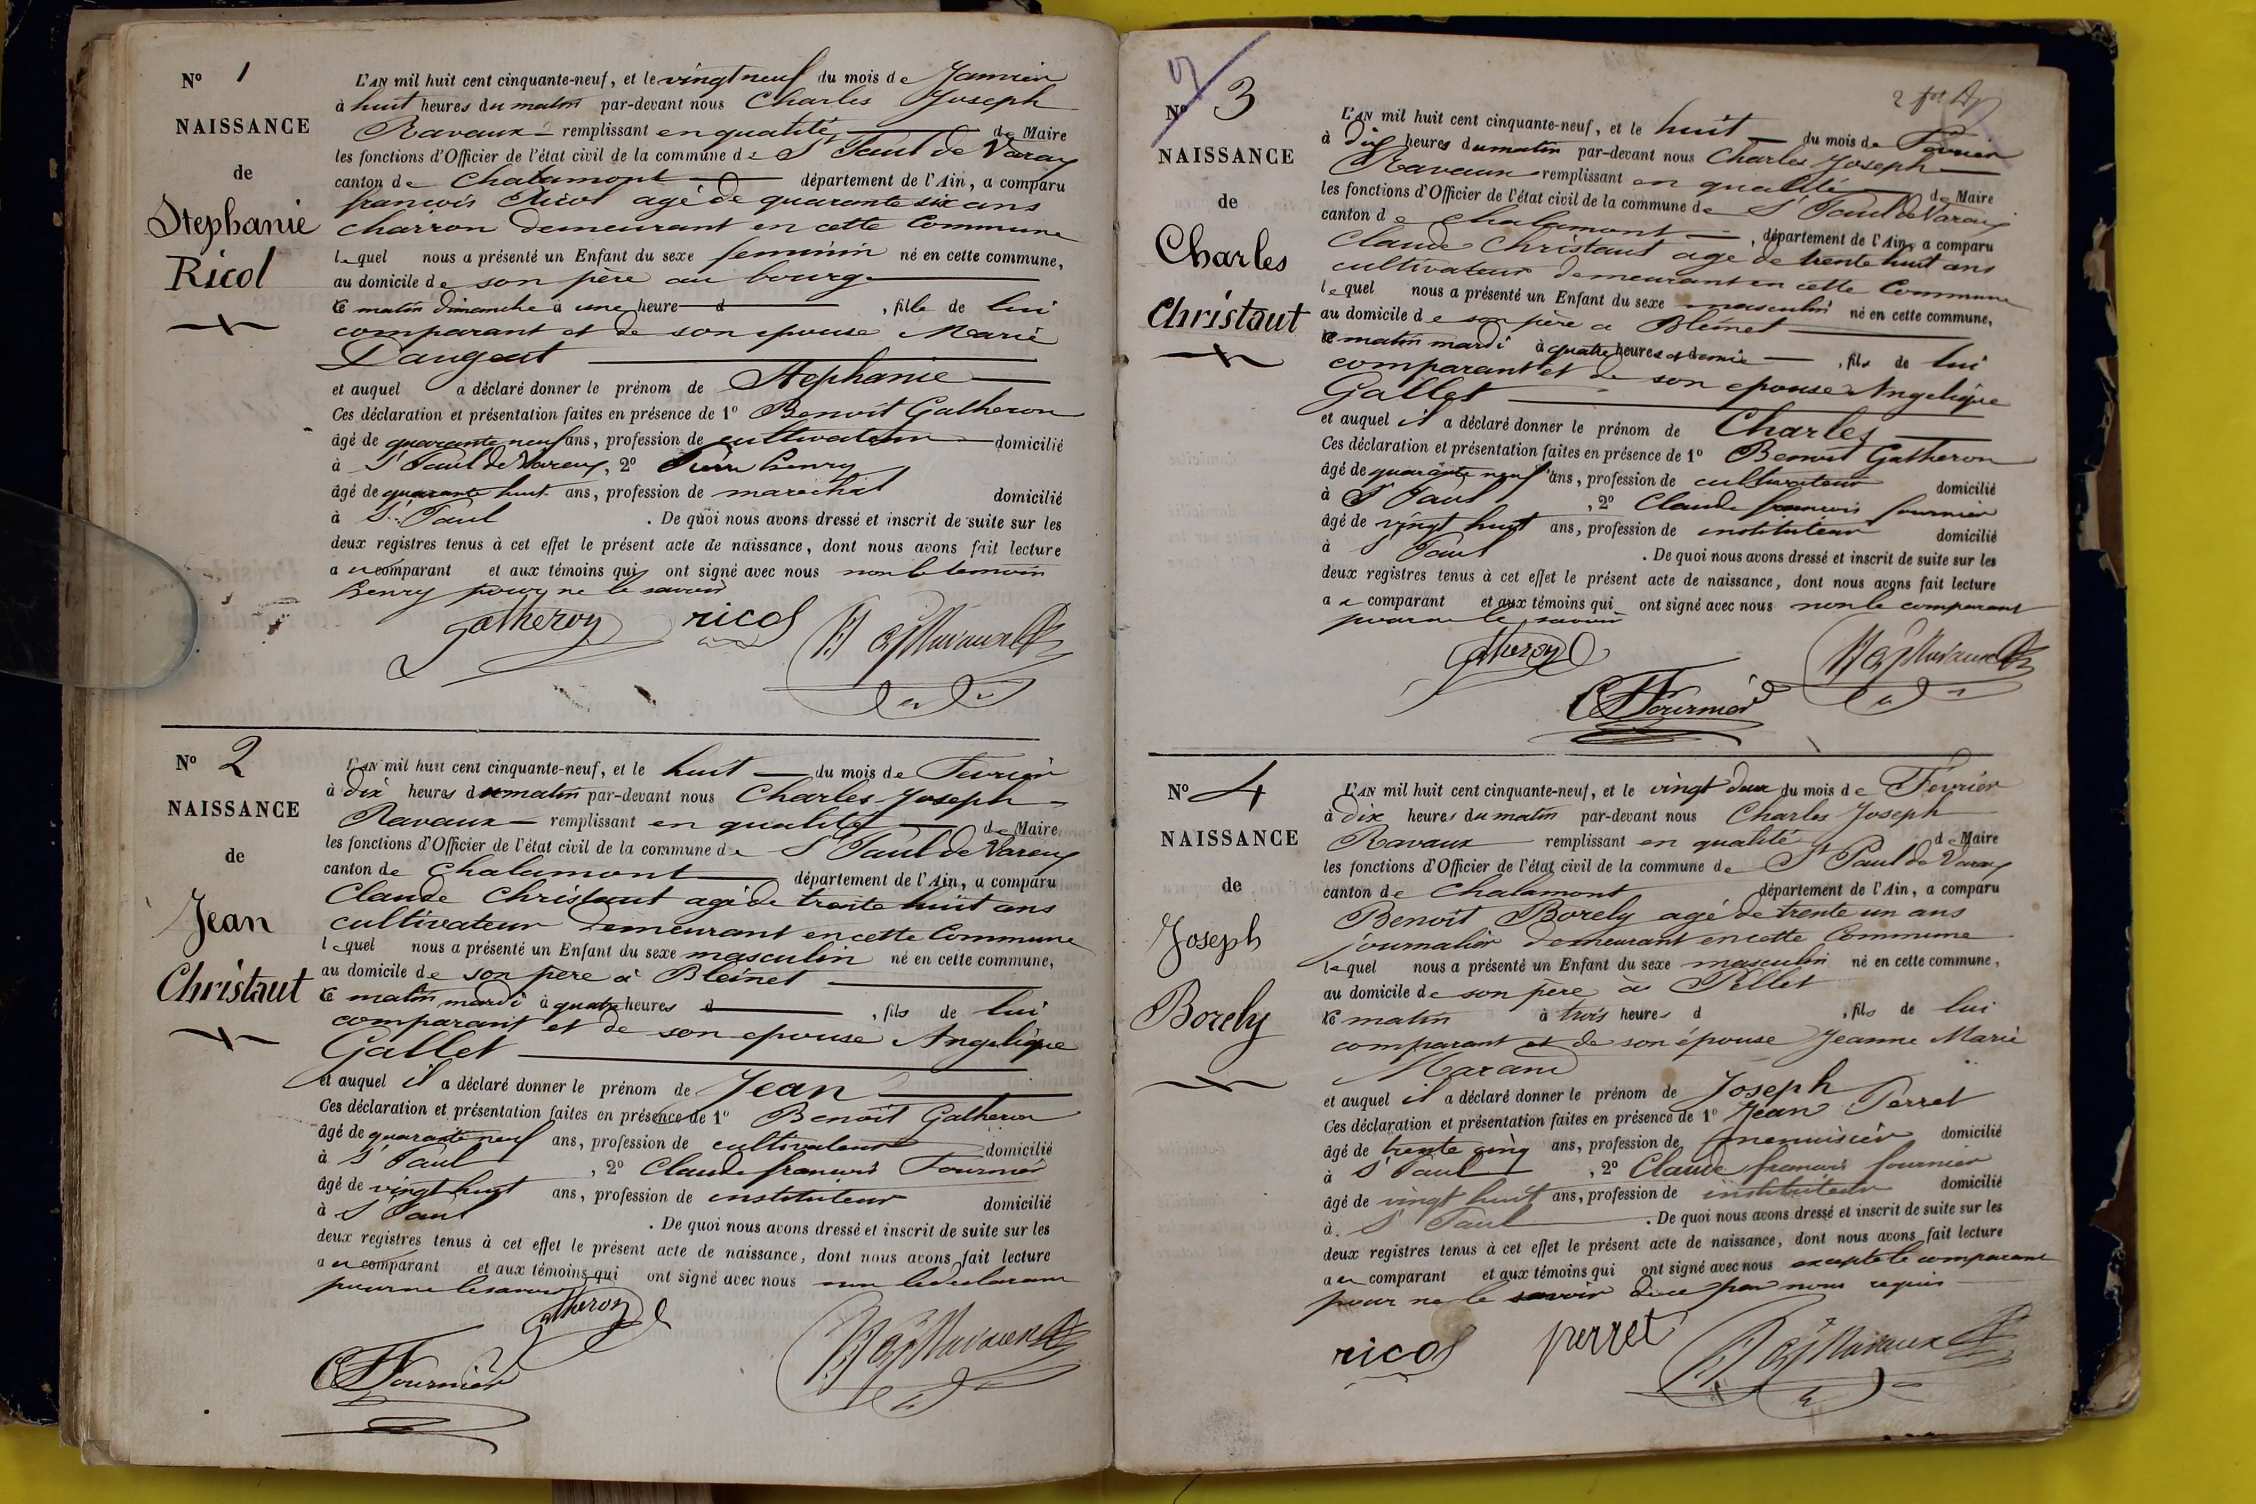 N° 1
NAISSANCE
de
Stephanie
Ricol
L'AN mil huit cent cinquante-neuf, et le vingt neuf du mois de Janvier
à huit heures du matin par-devant nous Charles Joseph
Ravaux remplissant en qualité de Maire
les fonctions d'Officier de l'état civil de la commune de St Paul de Varax
canton de Chalamont département de l'Ain, a comparu
francois Ricol agé de quarante six ans
charron demeurant en cette Commune
lequel nous a présenté un Enfant du sexe feminin né en cette commune,
au domicile de son père au bourg
ce matin dimanche à une heure d , fille de lui
comparant et de son epouse Marie
Laugent
et auquel a déclaré donner le prénom de Stephanie
Ces déclaration et présentation faites en présence de 1° Benoit Gatheron
âgé de quarante neuf ans, profession de cultivateur domicilié
à St Paul de Varax, 2° Pierre henry
âgé de quarante huit ans, profession de marechal domicilié
à St Paul . De quoi nous avons dressé et inscrit de suite sur les
deux registres tenus à cet effet le présent acte de naissance, dont nous avons fait lecture
au comparant et aux témoins qui ont signé avec nous non le temoin
henry pour ne le savoir
gatheron ricol Ravaux
N° 2
NAISSANCE
de
Jean
Christaut
L'AN mil huit cent cinquante-neuf, et le huit du mois de Fevrier
à dix heures du matin par-devant nous Charles Joseph
Ravaux remplissant en qualité de Maire
les fonctions d'Officier de l'état civil de la commune de St Paul de Varax
canton de Chalamont département de l'Ain, a comparu
Claude Christaut agé de trente huit ans
cultivateur demeurant en cette Commune
lequel nous a présenté un Enfant du sexe masculin né en cette commune,
au domicile de son pere à Bleinet
ce matin mardi à quatre heures d , fils de lui
comparant et de son epouse Angelique
Gallet
et auquel il a déclaré donner le prénom de Jean
Ces déclaration et présentation faites en présence de 1° Benoit Gatheron
âgé de quarante neuf ans, profession de cultivateur domicilié
à St Paul , 2° Claude francois Fournier
âgé de vingt huit ans, profession de instituteur domicilié
à St Paul . De quoi nous avons dressé et inscrit de suite sur les
deux registres tenus à cet effet le présent acte de naissance, dont nous avons fait lecture
au comparant et aux témoins qui ont signé avec nous non le declarant
pour ne le savoir
gatheron
CF Fournier Ravaux
N° 3
NAISSANCE
de
Charles
Christaut
L'AN mil huit cent cinquante-neuf, et le huit du mois de Fevrier
à dix heures du matin par-devant nous Charles Joseph
Ravaux remplissant en qualité de Maire
les fonctions d'Officier de l'état civil de la commune de St Paul de Varax
canton de Chalamont , département de l'Ain, a comparu
Claude Christaut agé de trente huit ans
cultivateur demeurant en cette Commune
lequel nous a présenté un Enfant du sexe masculin né en cette commune,
au domicile de son père a Bleinet
ce matin mardi à quatre heures et demie , fils de lui
comparant et de son epouse Angelique
Gallet
et auquel il a déclaré donner le prénom de Charles
Ces déclaration et présentation faites en présence de 1° Benoit Gatheron
âgé de quarante neuf ans, profession de cultivateur domicilié
à St Paul , 2° Claude francois fournier
âgé de vingt huit ans, profession de instituteur domicilié
à St Paul . De quoi nous avons dressé et inscrit de suite sur les
deux registres tenus à cet effet le présent acte de naissance, dont nous avons fait lecture
au comparant et aux témoins qui ont signé avec nous non le comparant
pour ne le savoir
gatheron Ravaux
CF Fournier
N° 4
NAISSANCE
de
Joseph
Borely
L'AN mil huit cent cinquante-neuf, et le vingt deux du mois de Février
à dix heures du matin par-devant nous Charles Joseph
Ravaux remplissant en qualité de Maire
les fonctions d'Officier de l'état civil de la commune de St Paul de Varax
canton de Chalamont département de l'Ain, a comparu
Benoit Borely agé de trente un ans
journalier demeurant en cette Commune
lequel nous a présenté un Enfant du sexe masculin né en cette commune,
au domicile de son père à Pillet
ce matin à trois heures d , fils de lui
comparant et de son épouse Jeanne Marie
Marand
et auquel il a déclaré donner le prénom de Joseph
Ces déclaration et présentation faites en présence de 1° Jean Perret
âgé de trente cinq ans, profession de menuisier domicilié
à St Paul , 2° Claude francois fournier
âgé de vingt huit ans, profession de instituteur domicilié
à St Paul . De quoi nous avons dressé et inscrit de suite sur les
deux registres tenus à cet effet le présent acte de naissance, dont nous avons fait lecture
au comparant et aux témoins qui ont signé avec nous excepté le comparant
pour ne le savoir de ce par nous requis
ricol perret Ravaux